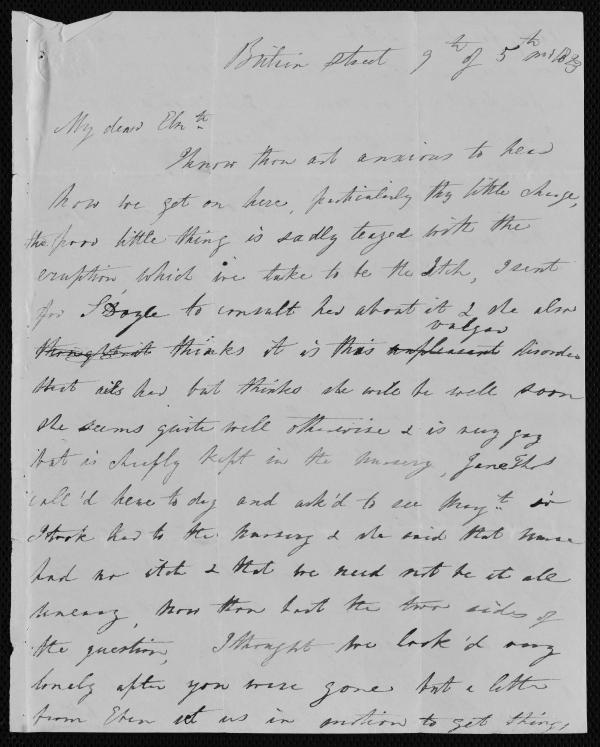 Britain Street 9th of 5th mo 1823
My dear Elizth
I know thou art anxious to hear
how we get on here, particularly thy little charge,
the poor little thing is sadly teazed with the
eruption, which we take to be the Itch, I sent
for S Doyle to consult her about it & she also
thought it thinks it is this unpleasant vulgar disorder
that ails her but thinks she will be well soon
she seems quite well otherwise & is very gay
but is chiefly kept in the nursery, Jane Thos
call'd here to day and ask'd to see Margt so
I took her to the nursery & she said that nurse
had no itch & that we need not be at all
uneasy, now thou hast the two sides of
the question, I thought we look'd very
lonely after you were gone but a letter
from Eben set us in motion to get things